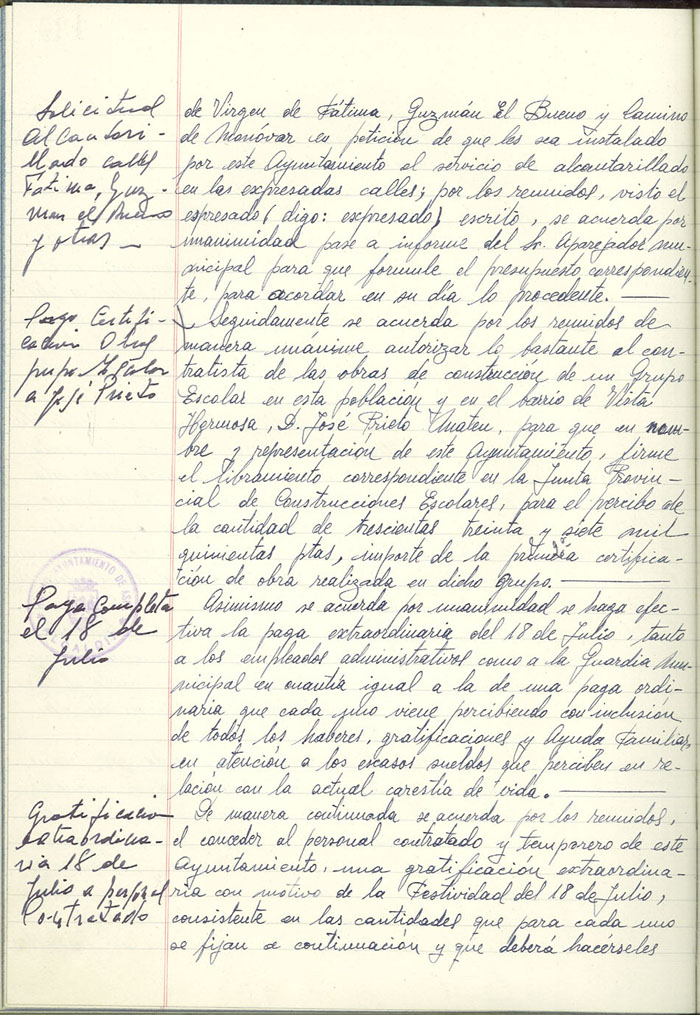 Solicitud
Alcantari-
llado calles
Fátima, Guz-
man el Bueno
y otras —
de Virgen de Fátima, Guzmán El Bueno y Camino
de Monóvar en petición de que les sea instalado
por este Ayuntamiento el servicio de alcantarillado
en las expresadas calles; por los reunidos, visto el
espresado (digo: expresado) escrito, se acuerda por
unanimidad pase a informe del Sr. Aparejador mu-
nicipal para que formule el presupuesto correspondien-
te, para acordar en su día lo procedente. —
Pago Certifi-
cación Obras
grupo Escolar
a José Prieto
Seguidamente se acuerda por los reunidos de
manera unánime autorizar lo bastante al con-
tratista de las obras de construcción de un Grupo
Escolar en esta población y en el barrio de Vista
Hermosa, D. José Prieto, para que en nom-
bre y representación de este Ayuntamiento, firme
el libramiento correspondiente en la Junta Provin-
cial de Construcciones Escolares, para el percibo de
la cantidad de trescientas treinta y siete mil
quinientas ptas, importe de la primera certifica-
ción de obra realizada en dicho grupo. —
AYUNTAMIENTO DE
Paga completa
el 18 de
Julio
Asimismo se acuerda por unanimidad se haga efec-
tiva la paga extraordinaria del 18 de Julio, tanto
a los empleados administrativos como a la Guardia Mu-
nicipal en cuantía igual a la de una paga ordi-
naria que cada uno viene percibiendo con inclusión
de todos los haberes, gratificaciones y Ayuda Familiar,
en atención a los escasos sueldos que perciben en re-
lación con la actual carestía de vida. —
Gratificación
extraordina-
ria 18 de
Julio a personal
Contratado
De manera continuada se acuerda por los reunidos,
el conceder al personal contratado y temporero de este
Ayuntamiento, una gratificación extraordina-
ria con motivo de la Festividad del 18 de Julio,
consistente en las cantidades que para cada uno
se fijan a continuación y que deberá hacérseles